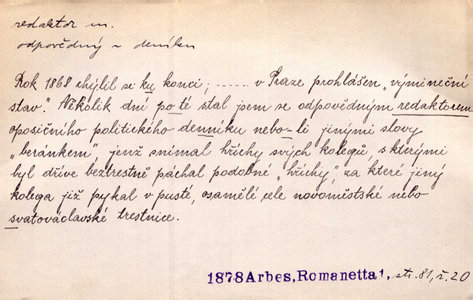 redaktor m.
odpovědný ~ deníku
Rok 1868 chýlil se ku konci; ...... v Praze prohlášen „výminečný
stav." Několik dní po té stal jsem se odpovědným redaktorem
oposičního politického denníku nebo-li jinými slovy
„beránkem", jenž snímal hříchy svých kolegů, s kterými
byl dříve beztrestně páchal podobné „hříchy", za které jiný
kolega již pykal v pusté, osamělé cele novoměstské nebo
svatováclavské trestnice.
1878 Arbes, Romanetta 1, str. 81, ř. 20